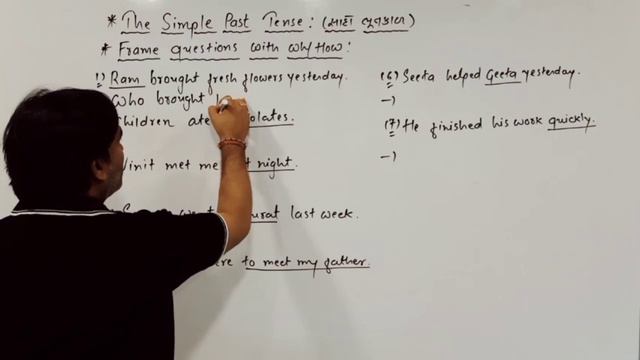 * The Simple Past Tense: (સાદો ભૂતકાળ)
* Frame questions with Wh/How:
1) Ram brought fresh flowers yesterday.
Who brought
Children ate
Vinit met me night.
last week.
to meet my father.
(6) Seeta helped Geeta yesterday.
→)
(7) He finished his work quickly.
→)